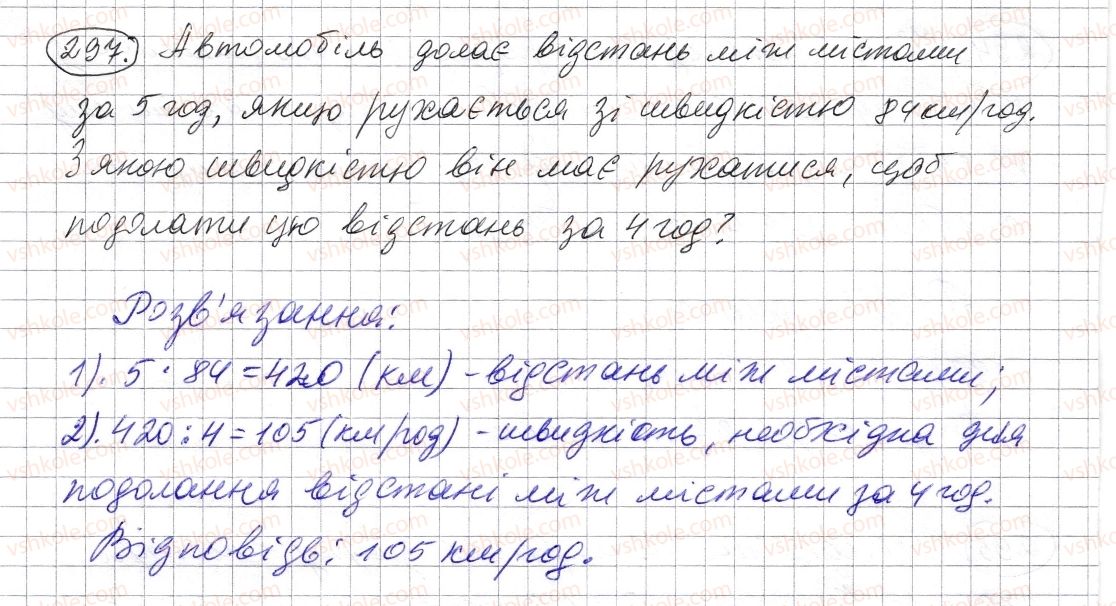 297. Автомобіль долає відстань між містами
за 5 год, якщо рухається зі швидкістю 84 км/год.
З якою швидкістю він має рухатися, щоб
подолати цю відстань за 4 год?
Розв'язання:
1). 5 · 84 = 420 (км) - відстань між містами;
2). 420 : 4 = 105 (км/год) - швидкість, необхідна для
подолання відстані між містами за 4 год.
Відповідь: 105 км/год.